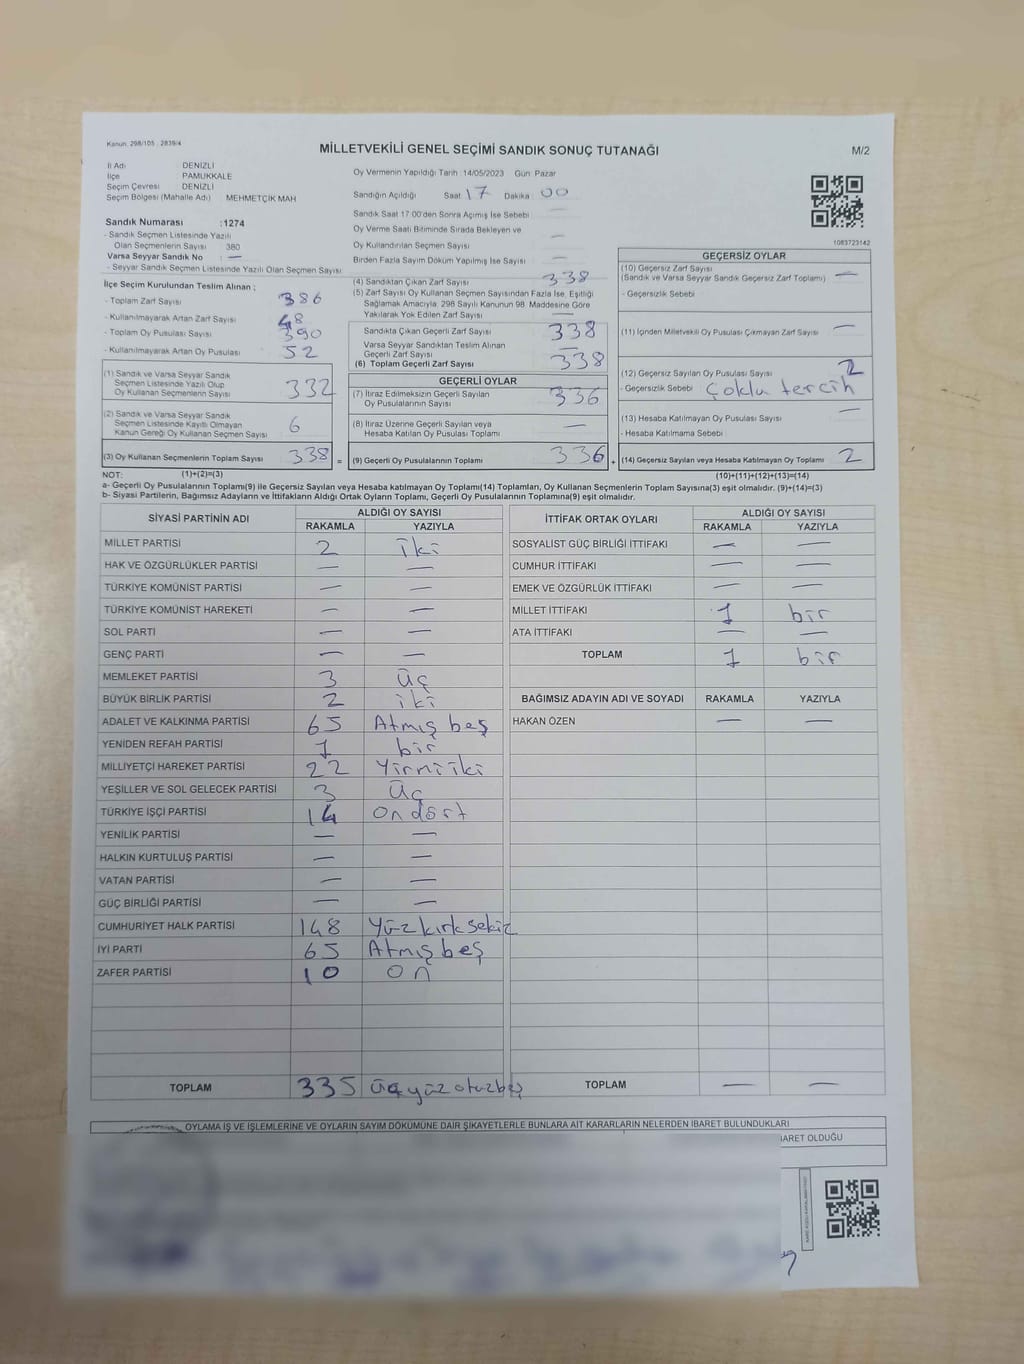 Kanun: 298/105 , 2839/4
MİLLETVEKİLİ GENEL SEÇİMİ SANDIK SONUÇ TUTANAĞI
M/2
İl Adı : DENİZLİ
İlçe : PAMUKKALE
Seçim Çevresi : DENİZLİ
Seçim Bölgesi (Mahalle Adı) MEHMETÇİK MAH
Oy Vermenin Yapıldığı Tarih :14/05/2023 Gün :Pazar
Sandığın Açıldığı Saat 17 Dakika 00
Sandık Saat 17:00'den Sonra Açımış İse Sebebi —
Oy Verme Saati Bitiminde Sırada Bekleyen ve
Oy Kullandırılan Seçmen Sayısı —
Birden Fazla Sayım Döküm Yapılmış İse Sayısı —
Sandık Numarası :1274
- Sandık Seçmen Listesinde Yazılı
Olan Seçmenlerin Sayısı 380
Varsa Seyyar Sandık No : —
- Seyyar Sandık Seçmen Listesinde Yazılı Olan Seçmen Sayısı:
1083723142
İlçe Seçim Kurulundan Teslim Alınan ;
- Toplam Zarf Sayısı 386
- Kullanılmayarak Artan Zarf Sayısı 48
- Toplam Oy Pusulası Sayısı 390
- Kullanılmayarak Artan Oy Pusulası 52
(1) Sandık ve Varsa Seyyar Sandık
Seçmen Listesinde Yazılı Olup
Oy Kullanan Seçmenlerin Sayısı 332
(2) Sandık ve Varsa Seyyar Sandık
Seçmen Listesinde Kayıtlı Olmayan
Kanun Gereği Oy Kullanan Seçmen Sayısı 6
(3) Oy Kullanan Seçmenlerin Toplam Sayısı 338
(4) Sandıktan Çıkan Zarf Sayısı 338
(5) Zarf Sayısı Oy Kullanan Seçmen Sayısından Fazla İse, Eşitliği
Sağlamak Amacıyla, 298 Sayılı Kanunun 98. Maddesine Göre
Yakılarak Yok Edilen Zarf Sayısı —
Sandıkta Çıkan Geçerli Zarf Sayısı 338
Varsa Seyyar Sandıktan Teslim Alınan
Geçerli Zarf Sayısı —
(6) Toplam Geçerli Zarf Sayısı 338
GEÇERLİ OYLAR
(7) İtiraz Edilmeksizin Geçerli Sayılan
Oy Pusulalarının Sayısı 336
(8) İtiraz Üzerine Geçerli Sayılan veya
Hesaba Katılan Oy Pusulası Toplamı —
= (9) Geçerli Oy Pusulalarının Toplamı 336
GEÇERSİZ OYLAR
(10) Geçersiz Zarf Sayısı
(Sandık ve Varsa Seyyar Sandık Geçersiz Zarf Toplamı) —
- Geçersizlik Sebebi
(11) İçinden Milletvekili Oy Pusulası Çıkmayan Zarf Sayısı —
(12) Geçersiz Sayılan Oy Pusulası Sayısı 2
- Geçersizlik Sebebi Çoklu tercih
(13) Hesaba Katılmayan Oy Pusulası Sayısı —
- Hesaba Katılmama Sebebi
+ (14) Geçersiz Sayılan veya Hesaba Katılmayan Oy Toplamı 2
NOT: (1)+(2)=(3) (10)+(11)+(12)+(13)=(14)
a- Geçerli Oy Pusulalarının Toplamı(9) ile Geçersiz Sayılan veya Hesaba Katılmayan Oy Toplamı(14) Toplamları, Oy Kullanan Seçmenlerin Toplam Sayısına(3) eşit olmalıdır. (9)+(14)=(3)
b- Siyasi Partilerin, Bağımsız Adayların ve İttifakların Aldığı Ortak Oyların Toplamı, Geçerli Oy Pusulalarının Toplamına(9) eşit olmalıdır.
SİYASİ PARTİNİN ADI ALDIĞI OY SAYISI
RAKAMLA YAZIYLA
MİLLET PARTİSİ 2 iki
HAK VE ÖZGÜRLÜKLER PARTİSİ — —
TÜRKİYE KOMÜNİST PARTİSİ — —
TÜRKİYE KOMÜNİST HAREKETİ — —
SOL PARTİ — —
GENÇ PARTİ — —
MEMLEKET PARTİSİ 3 üç
BÜYÜK BİRLİK PARTİSİ 2 iki
ADALET VE KALKINMA PARTİSİ 65 Atmış beş
YENİDEN REFAH PARTİSİ 1 bir
MİLLİYETÇİ HAREKET PARTİSİ 22 Yirmi iki
YEŞİLLER VE SOL GELECEK PARTİSİ 3 üç
TÜRKİYE İŞÇİ PARTİSİ 14 on dört
YENİLİK PARTİSİ — —
HALKIN KURTULUŞ PARTİSİ — —
VATAN PARTİSİ — —
GÜÇ BİRLİĞİ PARTİSİ — —
CUMHURİYET HALK PARTİSİ 148 Yüz kırk sekiz
İYİ PARTİ 65 Atmış beş
ZAFER PARTİSİ 10 on
TOPLAM 335 üç yüz otuz beş
İTTİFAK ORTAK OYLARI ALDIĞI OY SAYISI
RAKAMLA YAZIYLA
SOSYALİST GÜÇ BİRLİĞİ İTTİFAKI — —
CUMHUR İTTİFAKI — —
EMEK VE ÖZGÜRLÜK İTTİFAKI — —
MİLLET İTTİFAKI 1 bir
ATA İTTİFAKI — —
TOPLAM 1 bir
BAĞIMSIZ ADAYIN ADI VE SOYADI RAKAMLA YAZIYLA
HAKAN ÖZEN — —
TOPLAM — —
OYLAMA İŞ VE İŞLEMLERİNE VE OYLARIN SAYIM DÖKÜMÜNE DAİR ŞİKAYETLERLE BUNLARA AİT KARARLARIN NELERDEN İBARET BULUNDUKLARI
İBARET OLDUĞU